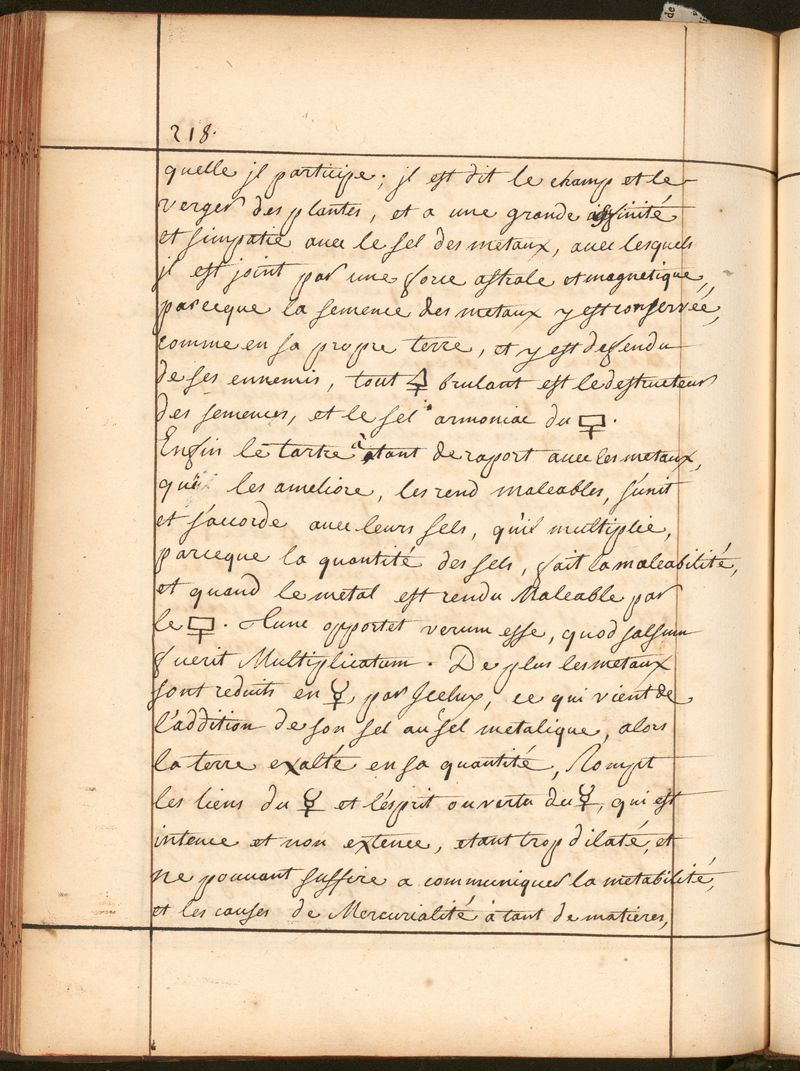 218.
quelle jl participe; jl est dit le champ et le
verger des plantes, et a une grande affinité
et simpatie avec le sel des metaux, avec lesquels
jl est joint par une force astrale et magnetique,
parceque la semence des metaux y est conservée,
comme en sa propre terre, et y est defendu
de ses ennemis, tout 🜍 brulant est le destructeur
des semences, et le sel armoniac du 🜿.
Enfin le tartre à tant de raport avec les metaux,
qui les ameliore, les rend maleables, s'unit
et s'accorde avec leurs sels, qu'il multiplie,
parceque la quantité des sels, fait la maleabilité,
et quand le metal est rendu Maleable par
le 🜿. Hunc opportet verum esse, quod salsum
fuerit Multiplicatum. De plus les metaux
sont reduits en ☿ par Jcelux, ce qui vient de
l'addition de son sel au sel metalique, alors
la terre exalté en sa quantité, Rompt
les liens du ☿ et l'esprit ouvert du ☿, qui est
intence et non extence, etant trop dilaté, et
ne pouvant suffire a communiquer la metabilité,
et les causes de Mercurialité à tant de matières,